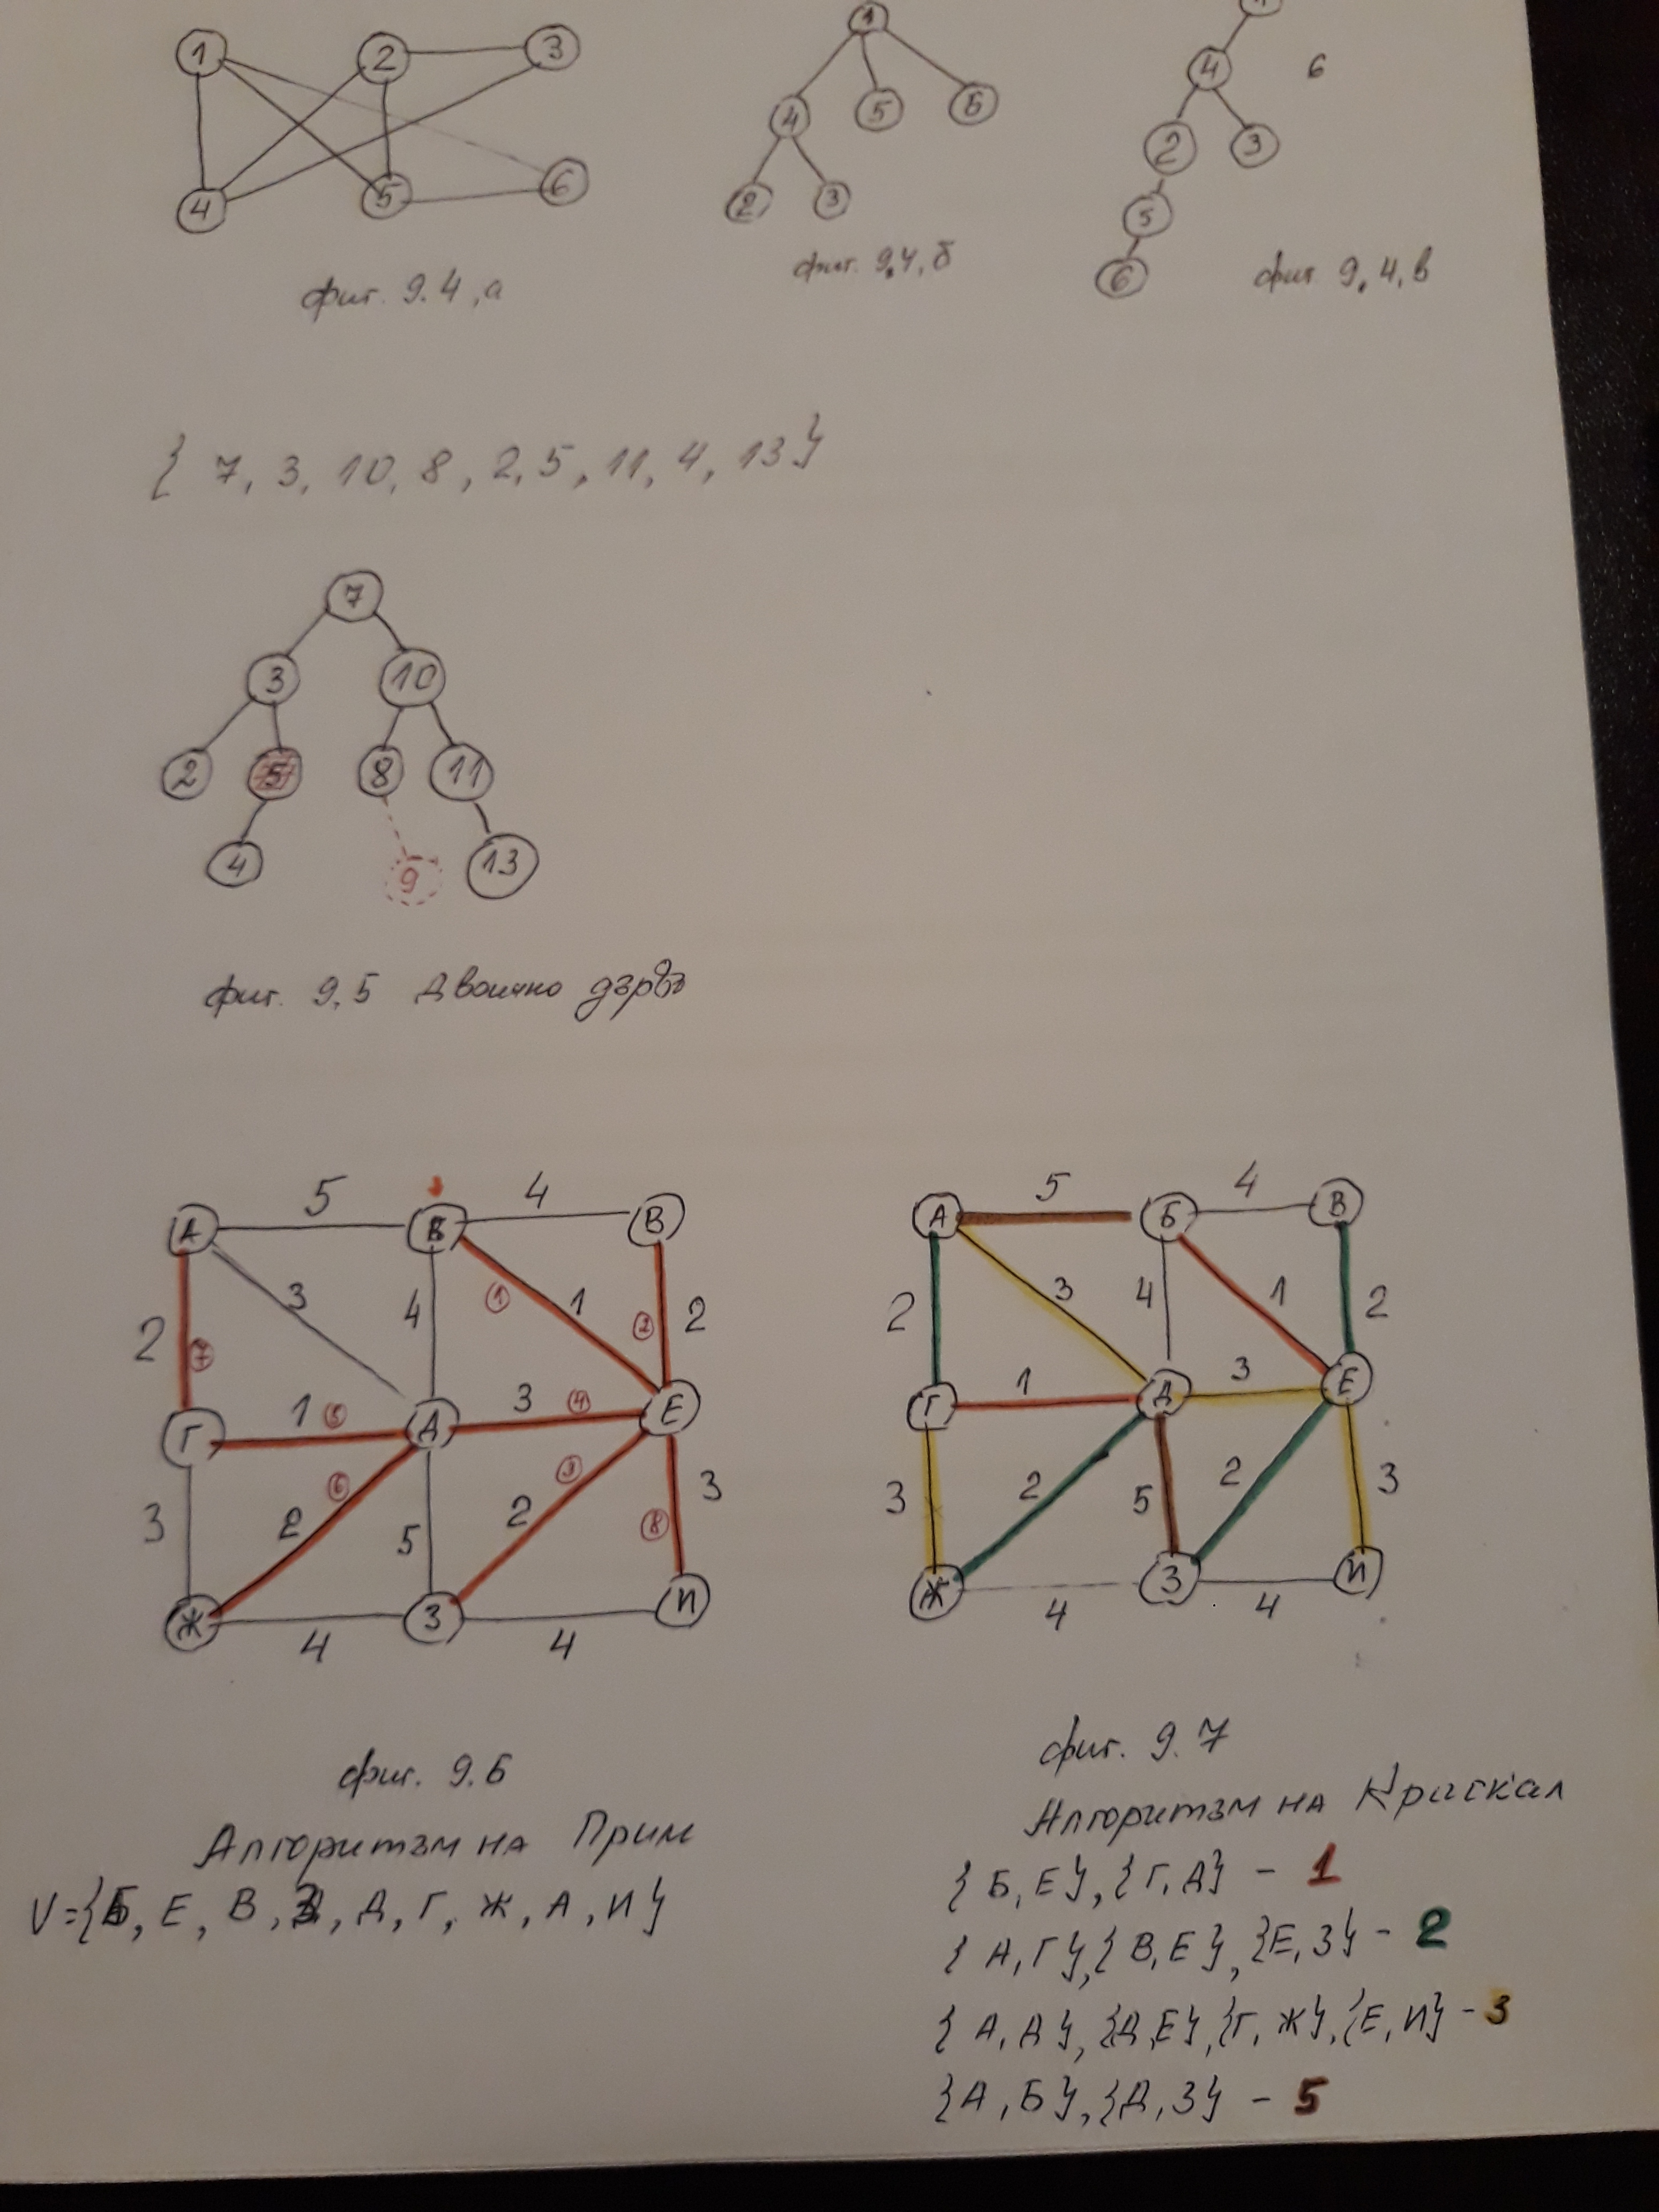 1 2 3
4 5 6
фиг. 9.4,а
1
4 5 6
2 3
фиг. 9,4,б
4 6
2 3
5
6
фиг 9,4,в
{ 7, 3, 10, 8, 2, 5, 11, 4, 13}
7
3 10
2 5 8 11
4 9 13
фиг. 9.5 Двоично дърво
А 5 Б 4 В
2 7 3 4 1 1 2 2
Г 1 5 Д 3 4 Е
3 2 6 5 2 3 8 3
Ж 4 З 4 И
фиг. 9.6
Алгоритъм на Прим
V={Б, Е, В, З, Д, Г, Ж, А, И}
А 5 Б 4 В
2 3 4 1 2
Г 1 Д 3 Е
3 2 5 2 3
Ж 4 З 4 И
фиг. 9.7
Алгоритъм на Крускал
{Б, Е}, {Г, Д} - 1
{А, Г}, {В, Е}, {Е, З} - 2
{А, Д}, {Д, Е}, {Г, Ж}, {Е, И} - 3
{А, Б}, {Д, З} - 5